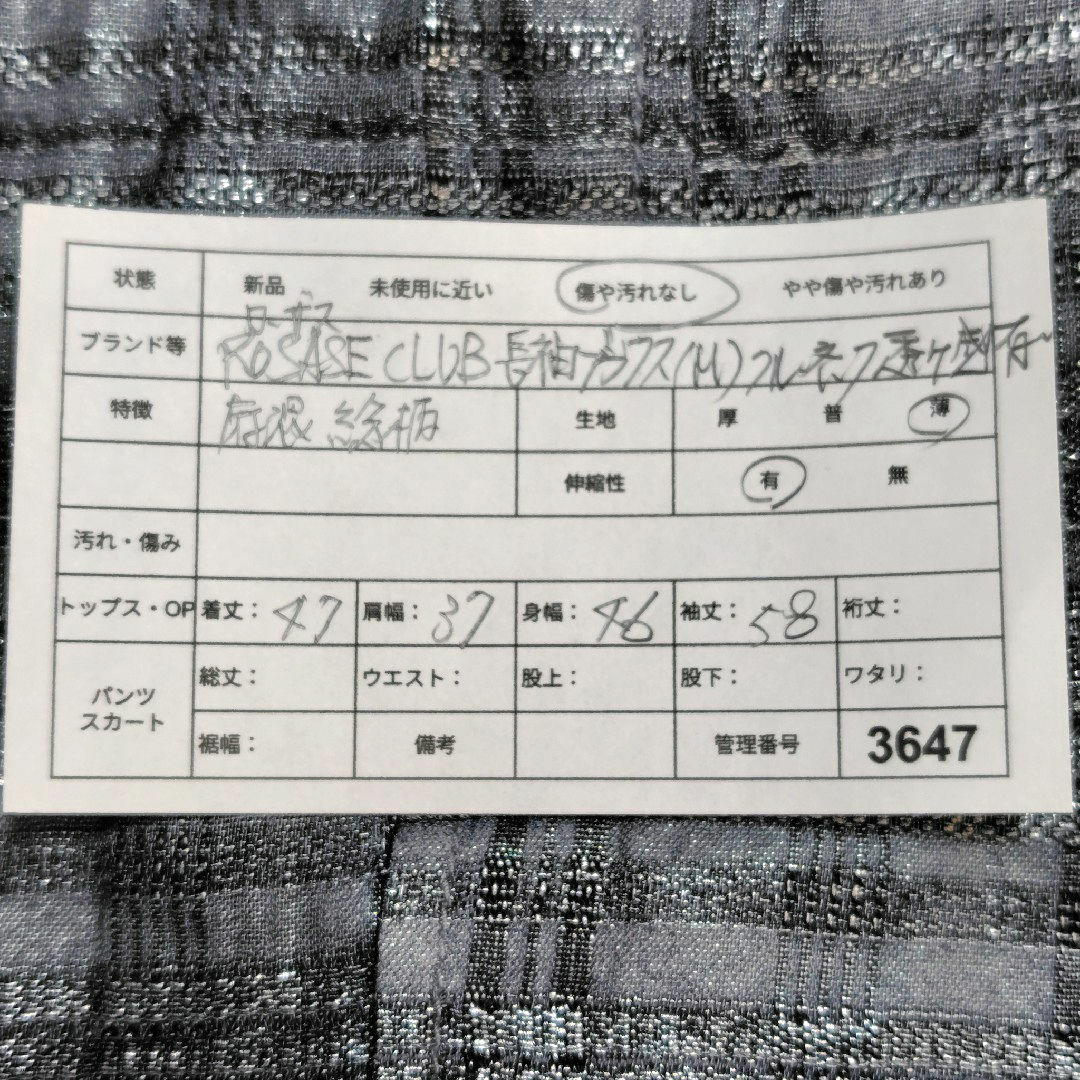 状態 新品 未使用に近い 傷や汚れなし やや傷や汚れあり
ローザス
ブランド等 ROSASE CLUB 長袖ブラウス(M)フルーネック透ヶ感有~
特徴 麻混 総柄 生地 厚 普 薄
伸縮性 有 無
汚れ・傷み
トップス・OP 着丈: 47 肩幅: 37 身幅: 46 袖丈: 58 裄丈:
パンツ スカート 総丈: ウエスト: 股上: 股下: ワタリ:
裾幅: 備考 管理番号 3647